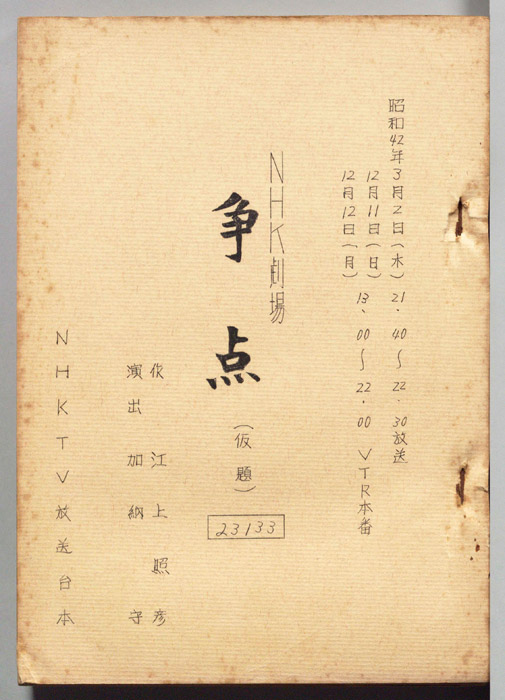 昭和42年3月2日(木) 21.40〜22.30放送
12月11日(日)
12月12日(月) 13.00〜22.00 VTR本番
NHK劇場
争点
(仮題)
23133
作 江上照彦
演出 加納守
NHKTV放送台本